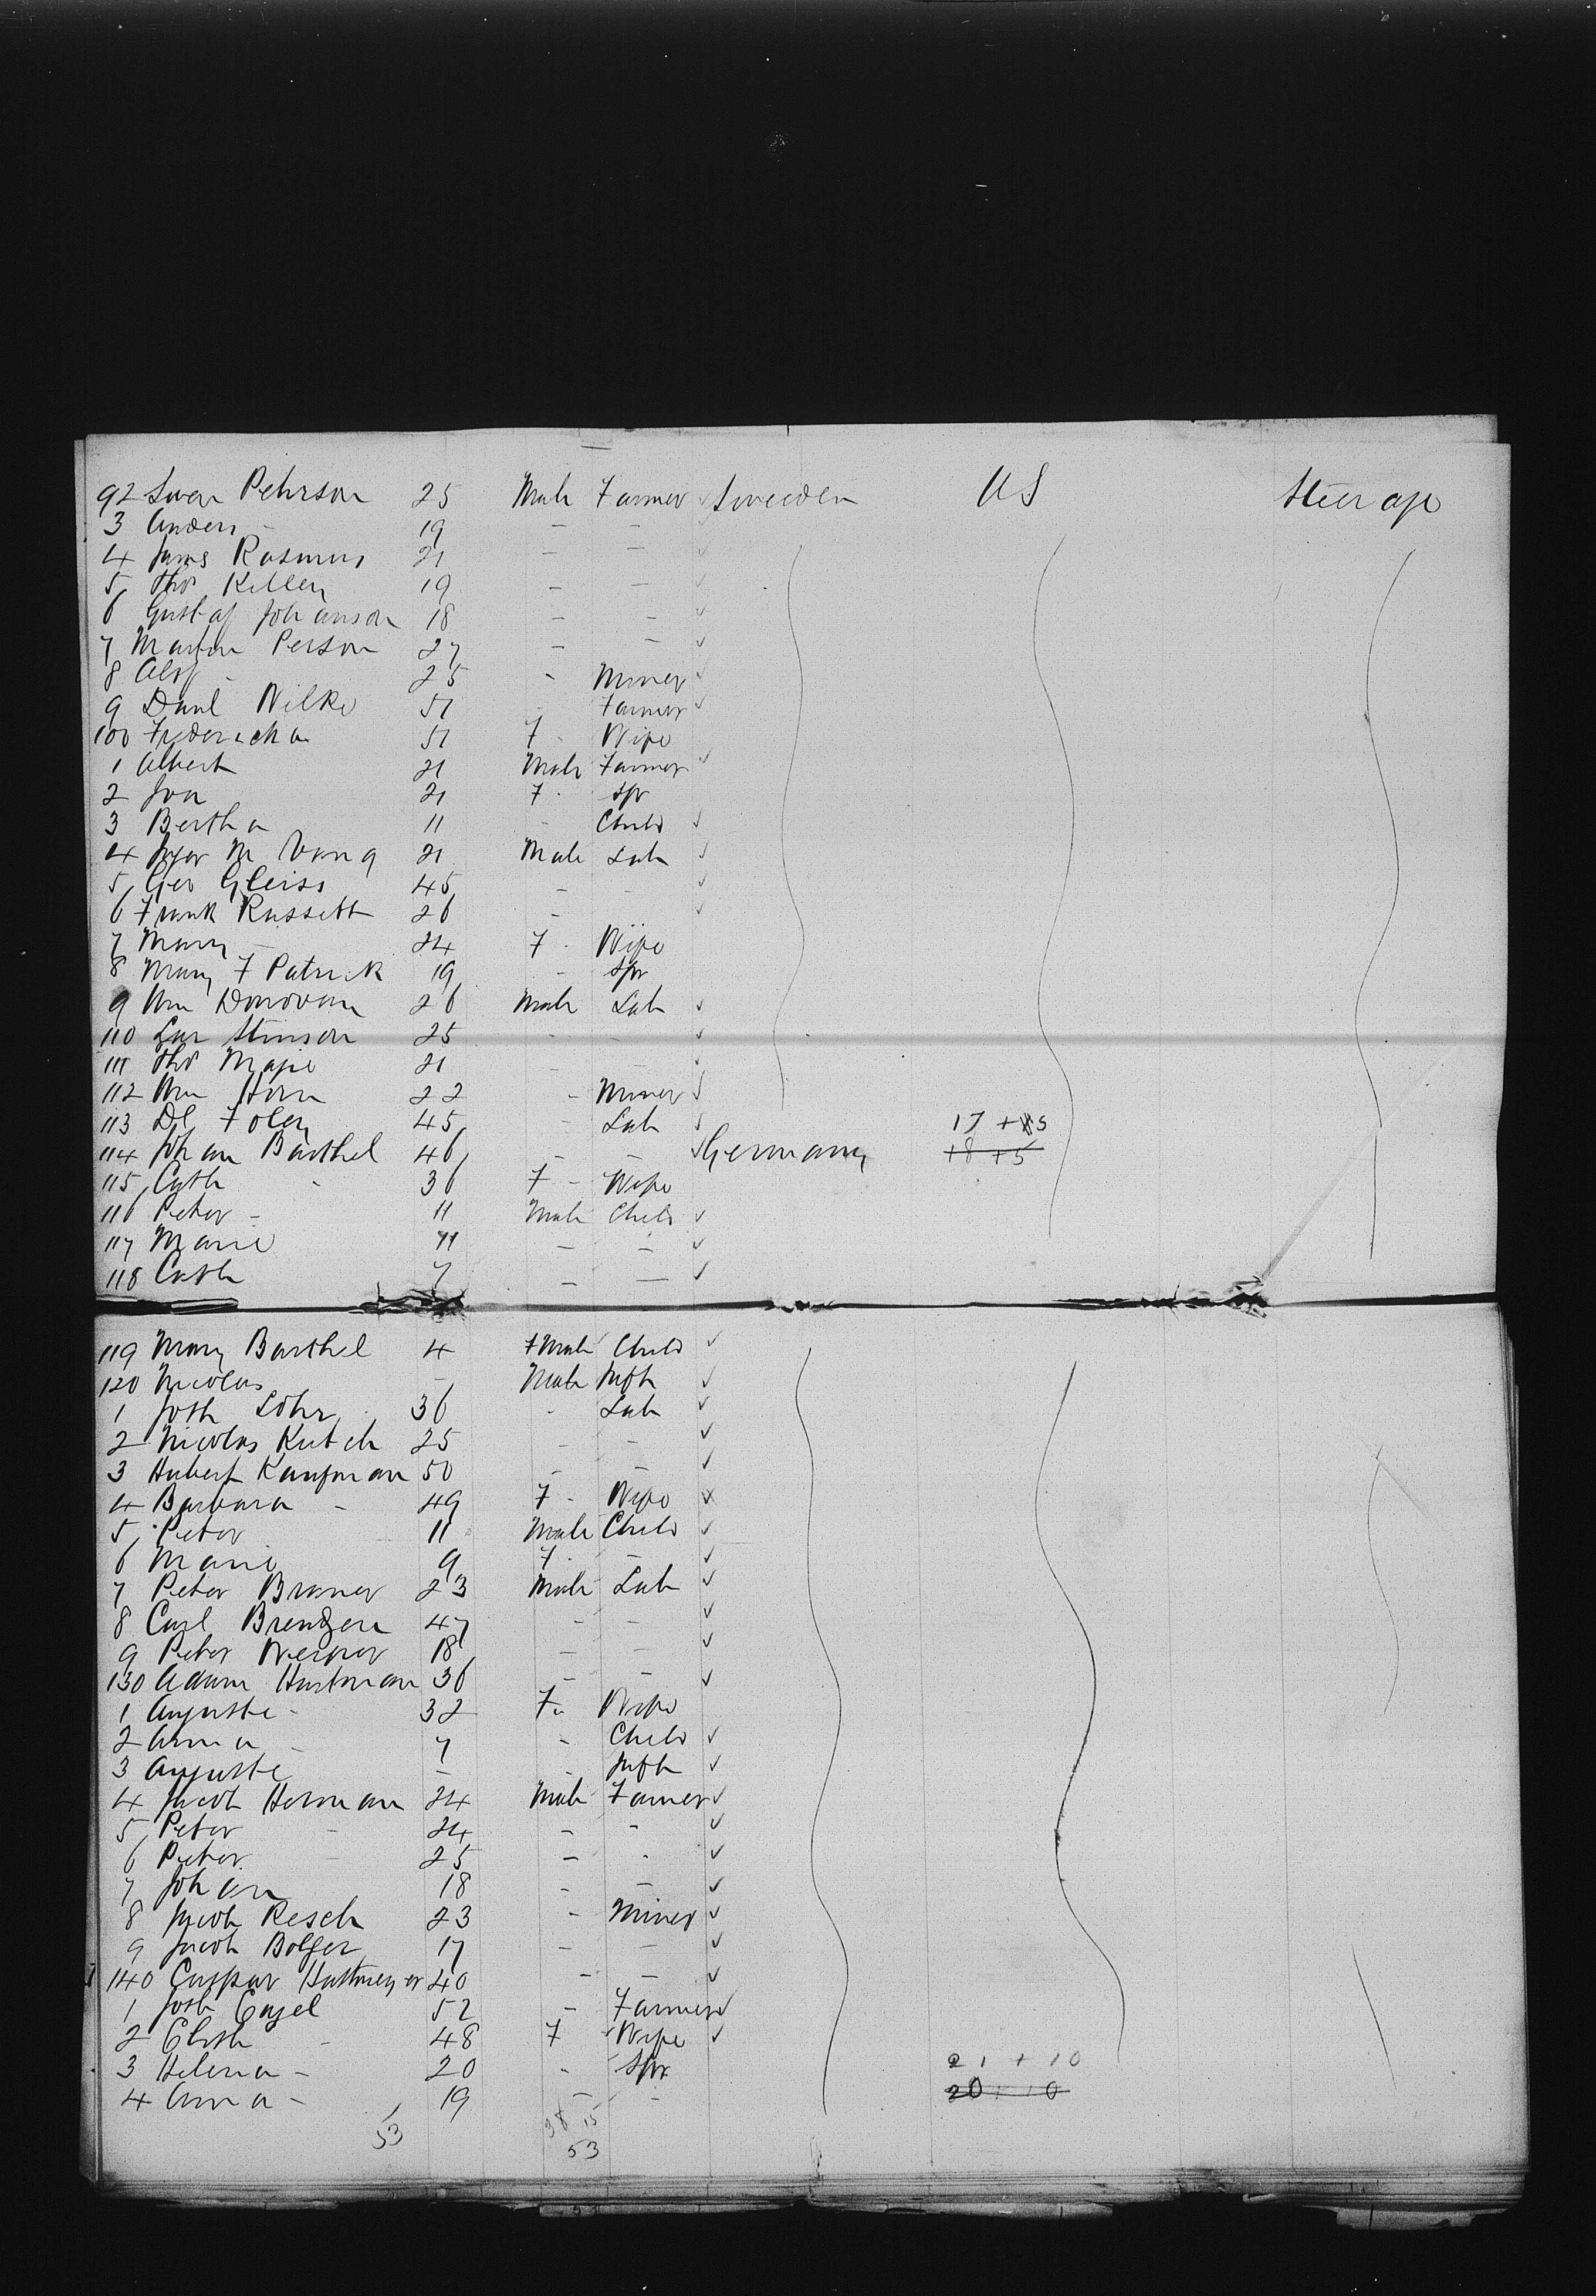 92 Swen Pehrson 25 Male Farmer Sweeden US Steerage
3 Anders - 19 - -
4 James Rasmus 21 - -
5 Tho Killen 19 - -
6 Gustaf Johanson 18 - -
7 Martin Person 27 - -
8 - 25 - Miner
9 Danl Wilke 51 - Farmer
100 Fredericka 51 F - Wife
1 Albert 21 Male Farmer
2 21 F - Spr
3 Bertha 11 - Child
4 21 Male Lab
5 Geo Gleiss 45 - -
6 Frank Russett 26 -
7 Mary - 24 F - Wife
8 Mary F Patrick 19 - Spr
9 Wm Donovan 26 Male Lab
110 Stinson 25 - -
111 Tho 21 - -
112 Wm Horn 22 - Miner
113 Dl Foley 45 - Lab 17 + 5
114 Johan Barthel 46 - - Germany 18 + 5
115 Cath - 36 F - Wife
116 Peter - 11 Male Child
117 Marie 11 - -
118 Cath 7 - -
119 Mary Barthel 4 Fmale Child
120 Nicolas - Male Inft
1 Josh Löhr 36 - Lab
2 Nicolas Kutch 25 - -
3 Hubert Kaufman 50 - -
4 Barbara - 49 F - Wife
5 Peter 11 Male Child
6 Marie 9 F - -
7 Peter Braner 23 Male Lab
8 Carl 47 - -
9 Peter Werner 18 - -
130 Adam Hartman 36 - -
1 Auguste - 32 F - Wife
2 Anna - 7 - Child
3 Auguste - - Inft
4 Jacob Herman 24 Male Farmer
5 Peter - 24 - -
6 Peter - 25 - -
7 Johan 18 - -
8 Jacob Resch 23 - Miner
9 Jacob Bolger 17 - -
140 Caspar 40 - -
1 Josh Engel 52 - Farmer
2 Elisth - 48 F Wife
3 Helena - 20 - Spr 21 + 10
4 Anna - 19 - - 20 + 10
53 38 15
53